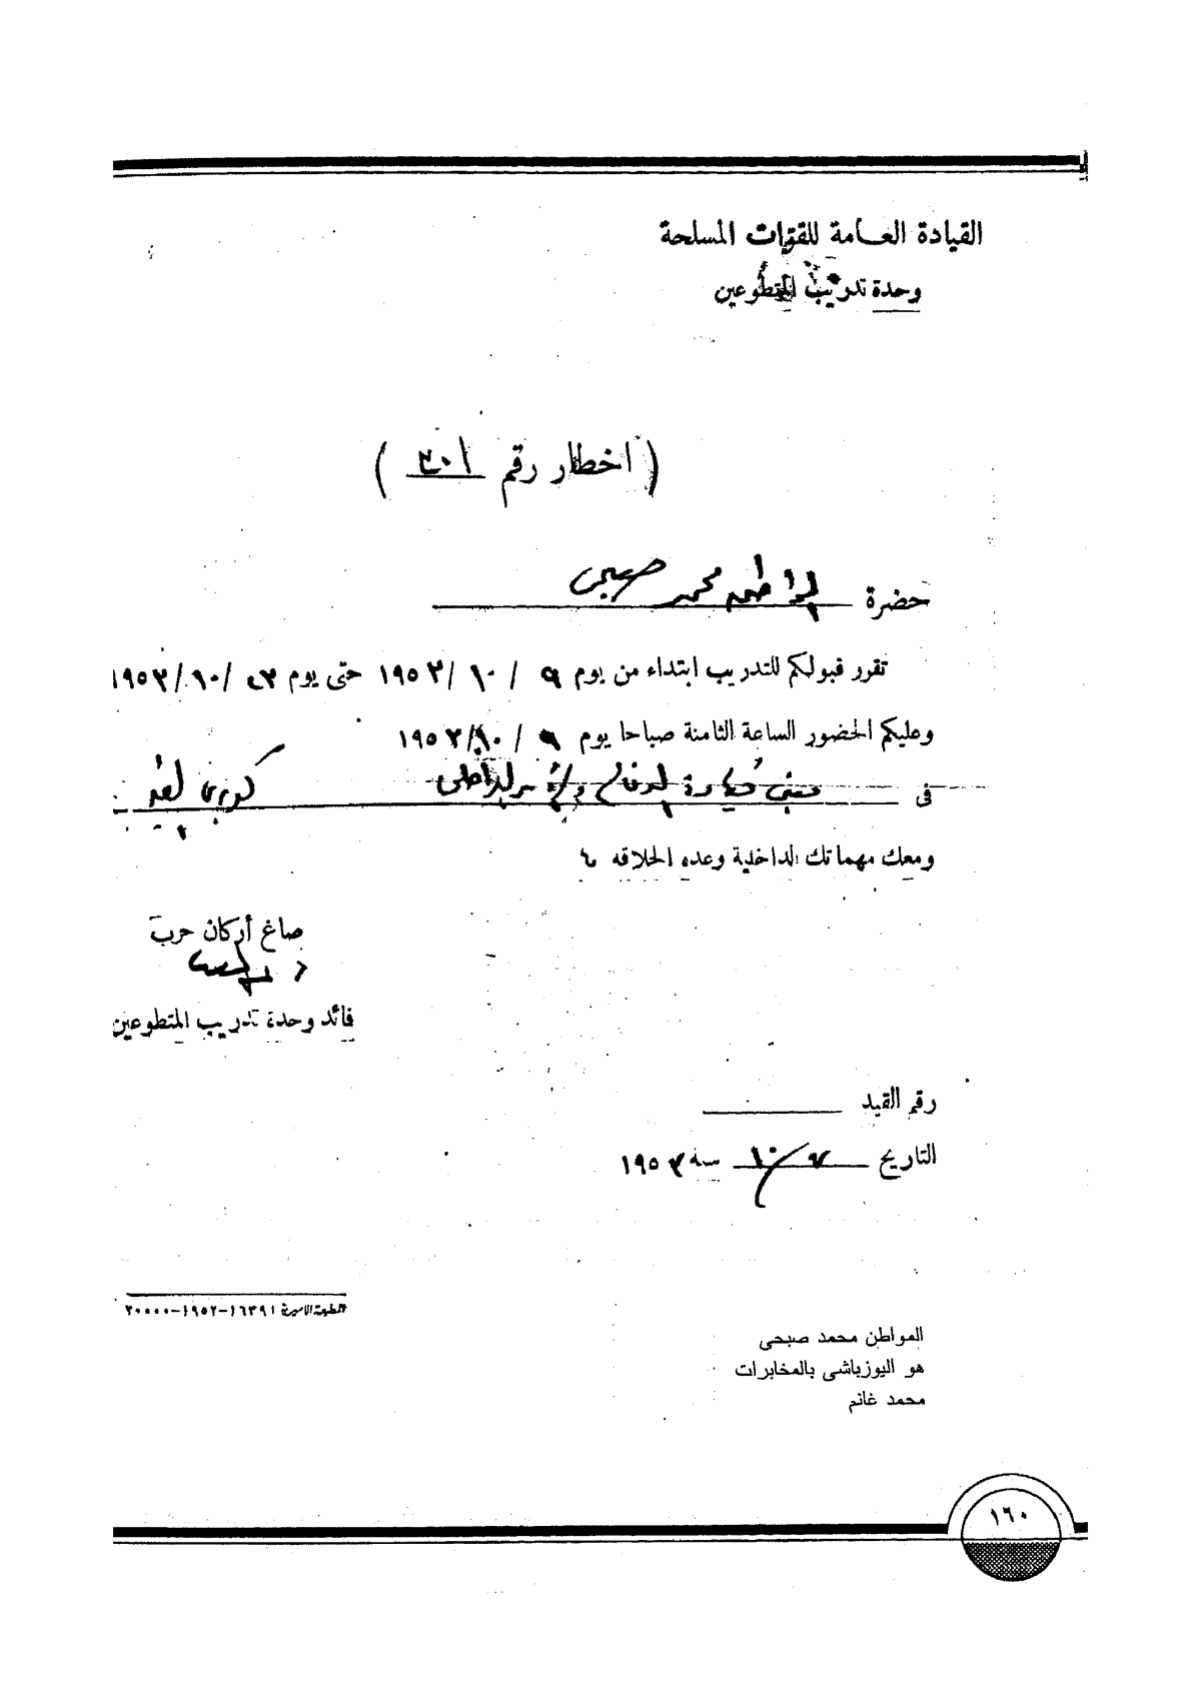 القيادة العامة للقوات المسلحة
وحدة تدريب المتطوعين
( اخطار رقم ٣٠١ )
حضرة المواطن محمد صبحى
تقرر قبولكم للتدريب ابتداء من يوم ٩ / ١٠ / ١٩٥٣ حتى يوم ٢٣ / ١٠ / ١٩٥٣
وعليكم الحضور الساعة الثامنة صباحا يوم ٩ / ١٠ / ١٩٥٣
فى مبنى قيادة كوبرى القبة
ومعك مهماتك الداخلية وعده الحلاقه
صاغ أركان حرب
قائد وحدة تدريب المتطوعين
رقم القيد
التاريخ ٧/١٠ سنة ١٩٥٣
المطبعة الاميرية ١٦٣٩١-١٩٥٢-٢٠٠٠٠
المواطن محمد صبحى
هو اليوزباشى بالمخابرات
محمد غانم
١٦٠